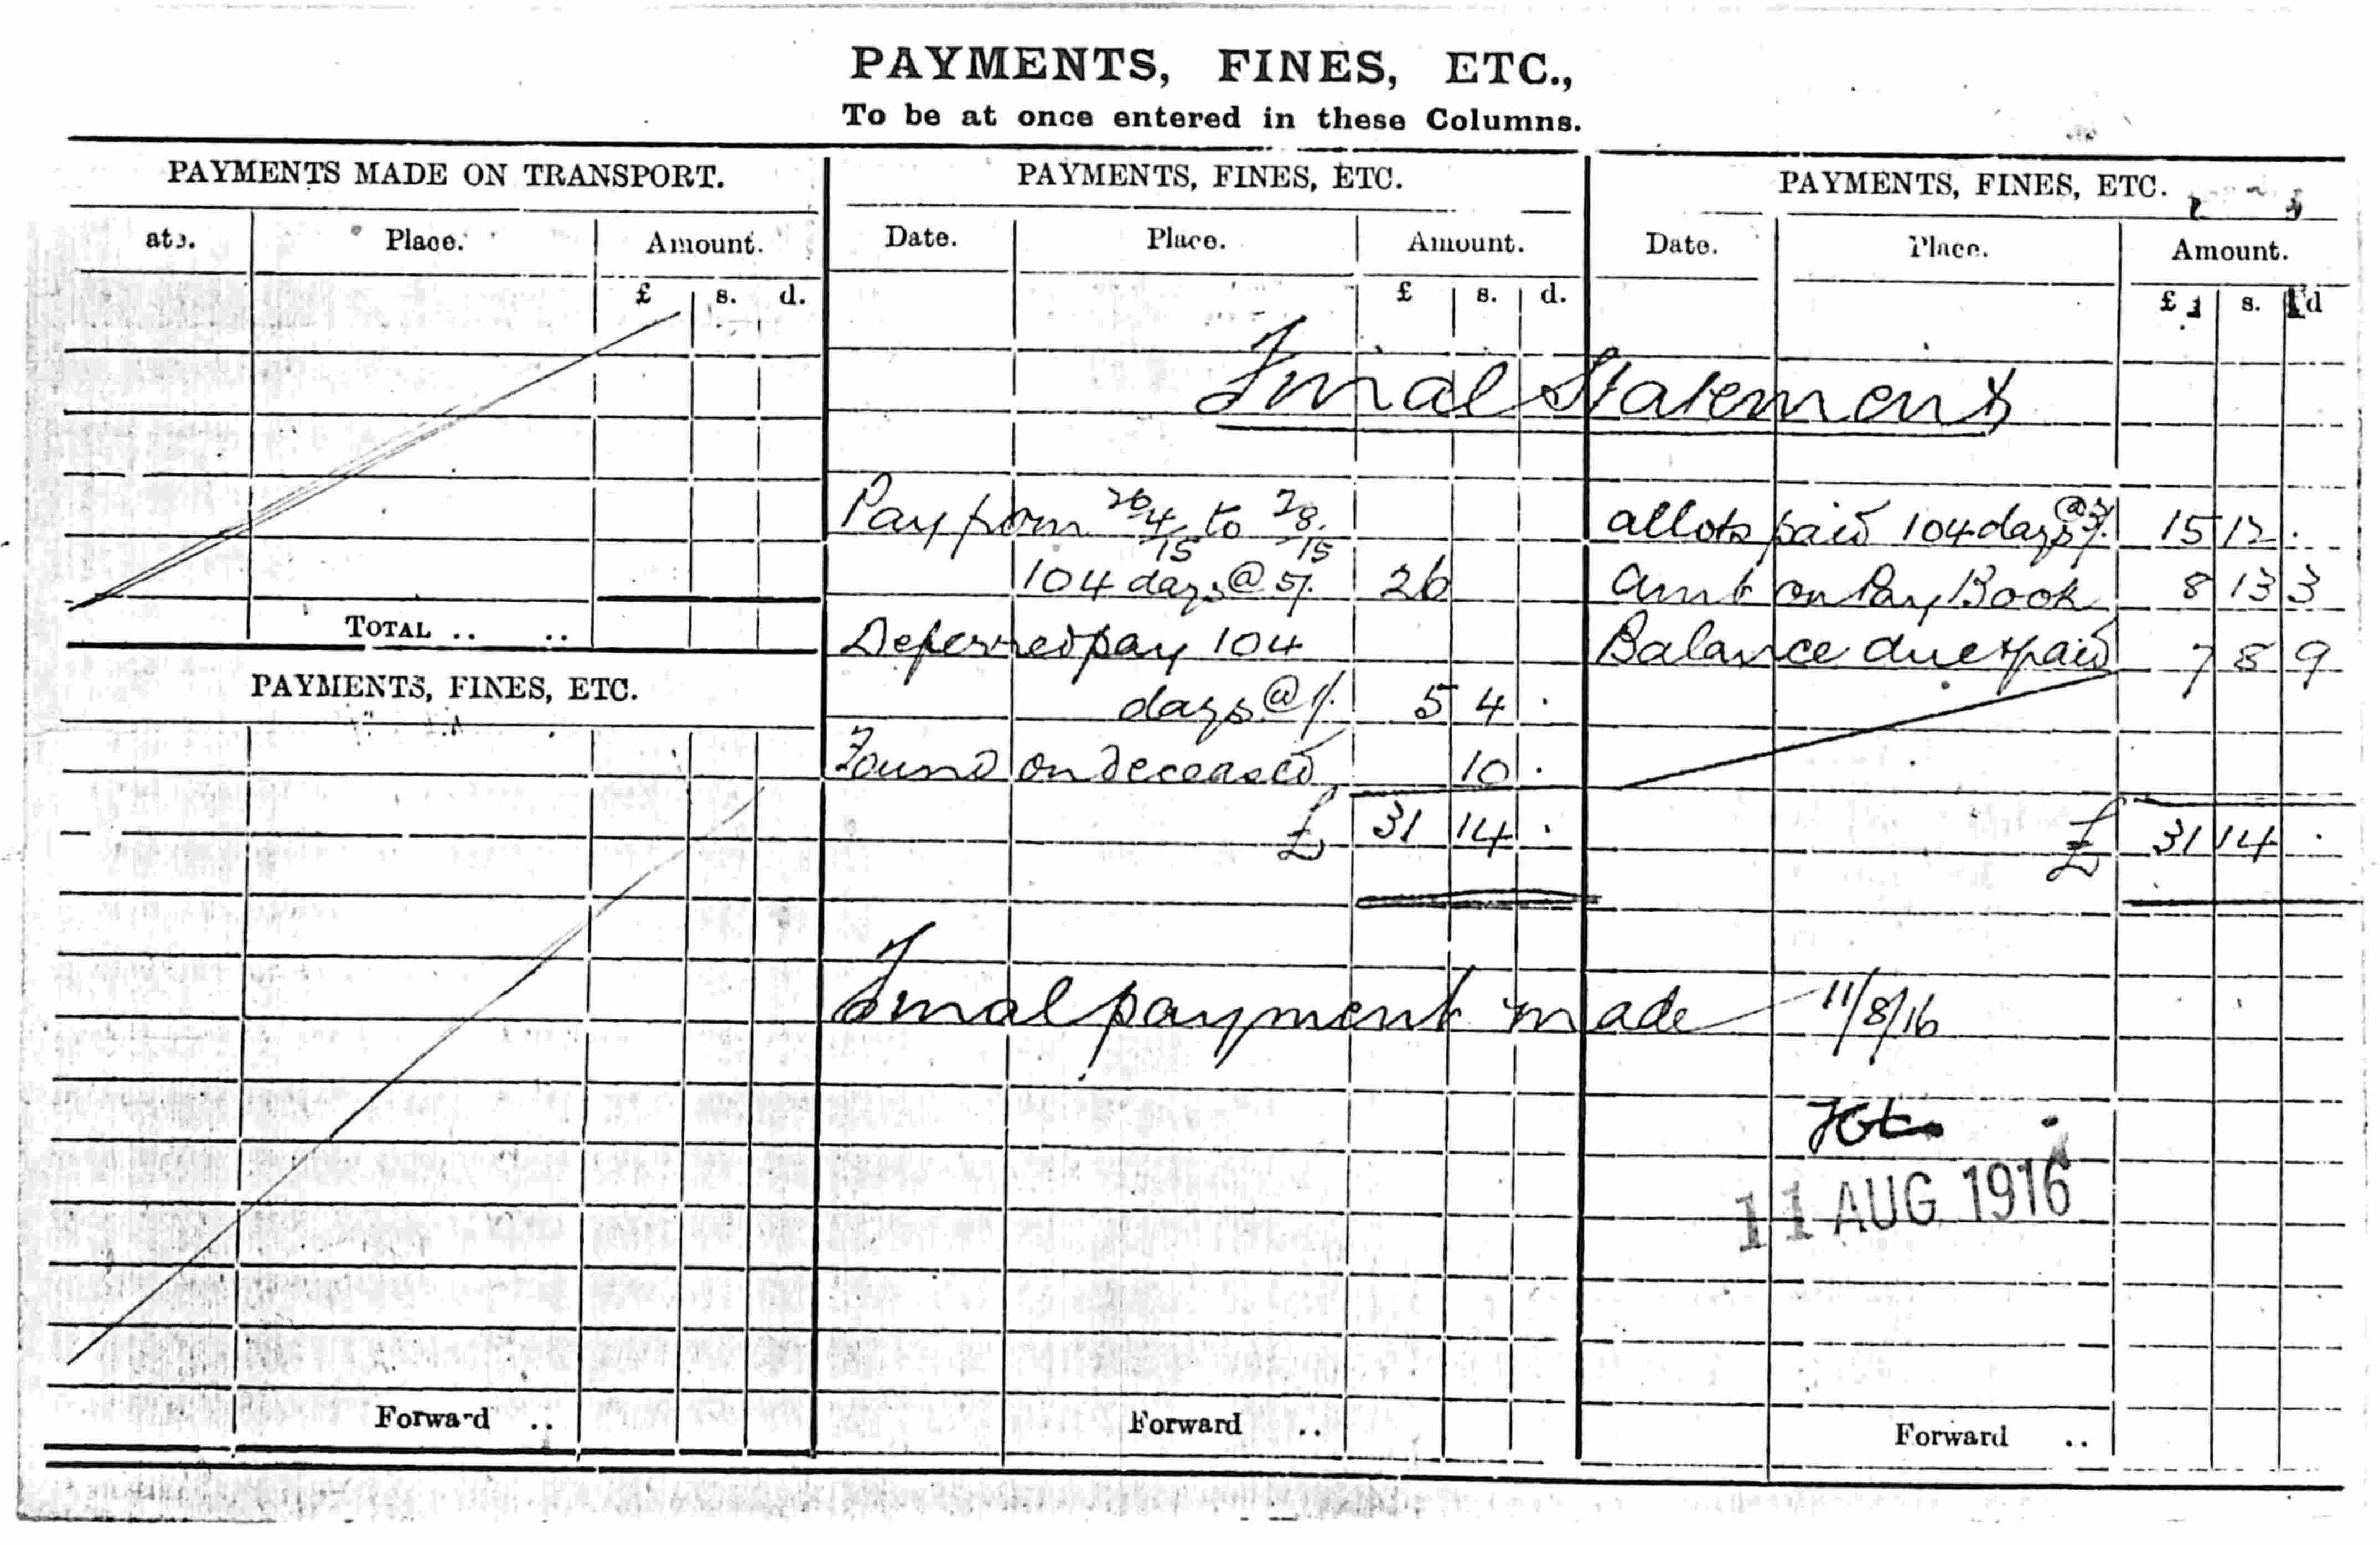 PAYMENTS, FINES, ETC.,
To be at once entered in these Columns.
PAYMENTS MADE ON TRANSPORT.
ate. Place. Amount.
£ s. d.
TOTAL .. ..
PAYMENTS, FINES, ETC.
Forward ..
PAYMENTS, FINES, ETC.
Date. Place. Amount.
£ s. d.
Final Statement
Pay from 26/4/15 to 7/8/15
104 days @ 5/. 26
Deferred pay 104
days @ 1/. 5 4 .
Found on deceased 10 .
£ 31 14 .
Final payment made 11/8/16
Forward ..
PAYMENTS, FINES, ETC.
Date. Place. Amount.
£ s. d
allots paid 104 days @ 3/. 15 12 .
amt on Pay Book 8 13 3
Balance due & paid 7 8 9
£ 31 14 .
11 AUG 1916
Forward ..